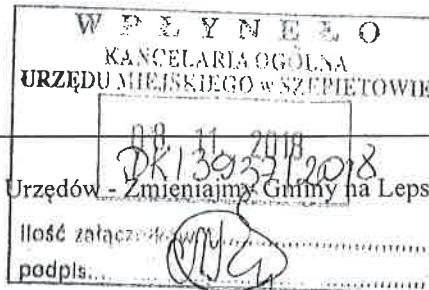 W P Ł Y N Ę Ł O
KANCELARIA OGÓLNA
URZĘDU MIEJSKIEGO w SZEPIETOWIE
08. 11. 2018
DK/3937/2018
Urzędów - Zmieniajmy Gminy na Leps
Ilość załączników
podpis